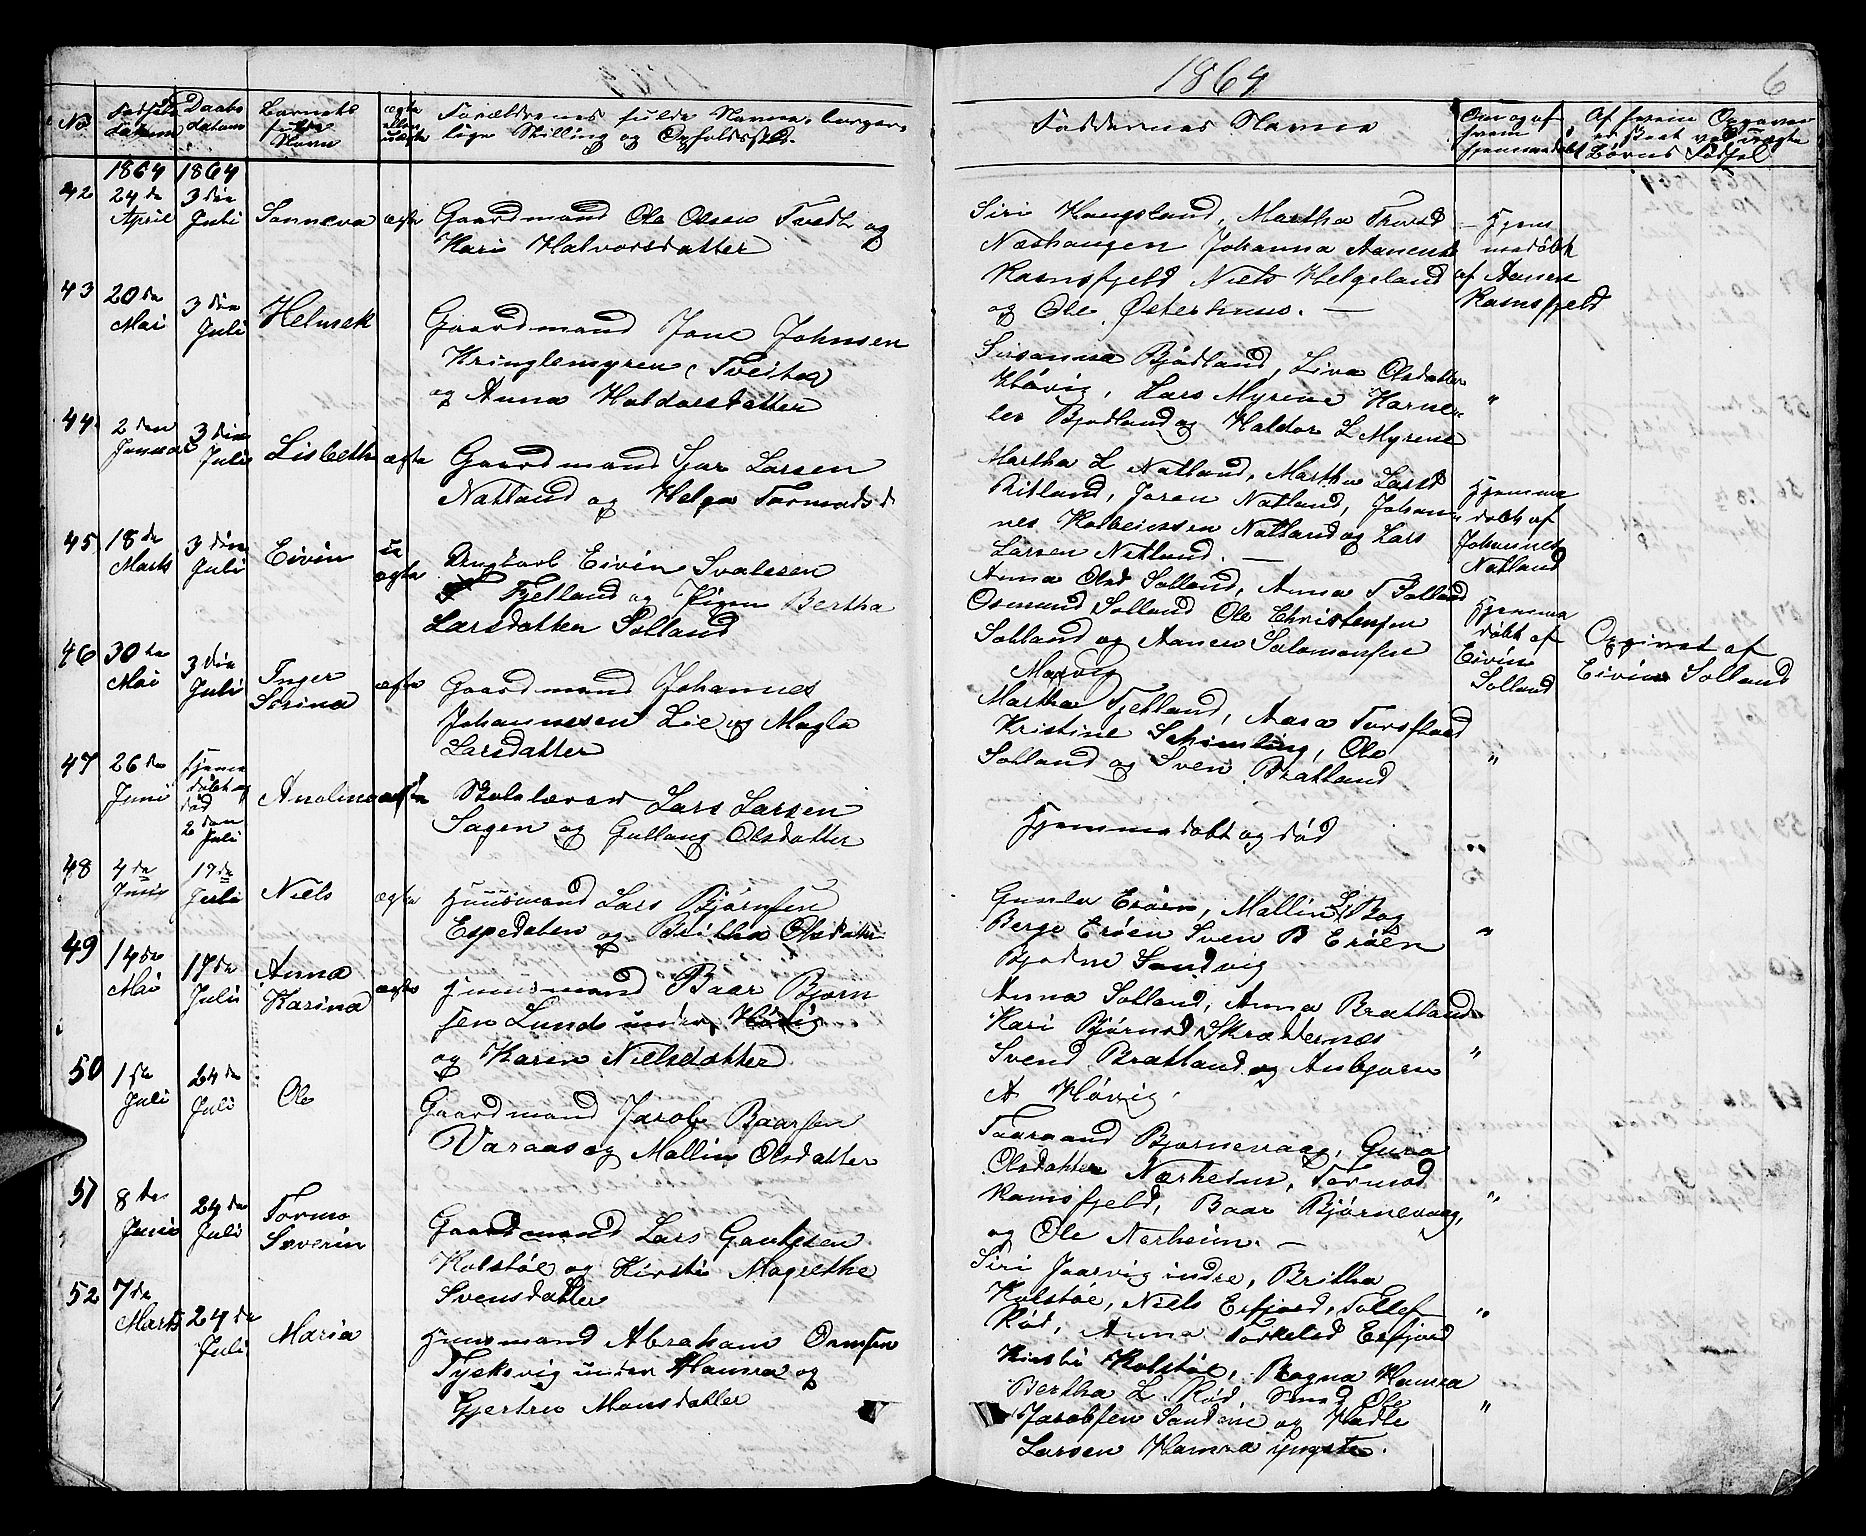 1864
6
No
Fødsels datum
Daabs datum
Barnets fulde Navn
ægte eller uægte
Forældrenes fulde Navne, borgerlige Stilling og Opholdssted.
Faddernes Navne
Om og af hvem hjemmedøbt
Af hvem Opgaven er skeet ved uægte Børns Fødsel
1864 1864
42 24de April 3die Juli Sønneva ægte
Gaardmand Ole Olsen Tvedt og
Kari Halvorsdatter
Siri Haugsland, Martha Thorsd
Næshaugen Johanna Aanensd
Ramsfjeld Niels Helgeland
og Ole Østerhuus. —
Hjemmedøbt
af Aanen
Ramsfjeld
43 20de Mai 3die Juli Helmek
Gaardmand Jone Johnsen
Kringlemyren, Tveita
og Anna Haldorsdatter
Susanna Bjødland, Liva Olsdatter
Høvig, Lars Myrene Korne-
ler Bjødland og Haldor L Myrene
"
44 2den Januar 3die Juli Lisbeth ægte
Gaardmand Sjur Larsen
Natland og Helga Tormodsd
Martha L Natland, Martha Larsd
Ritland, Joren Natland, Johan-
nes Kolbeinssen Natland og Lars
Larsen Natland. —
Hjemme
døbt af
Johannes
Natland
45 18de Marts 3die Juli Eivin uægte
Ungkarl Eivin Svalesen
Fjetland og Pigen Bertha
Larsdatter Solland
Anna Olsd Solland, Anna T Solland
Osmund Solland Ole Christensen
Solland og Aanen Salomonsen
Marvig
Hjemme
døbt af
Eivin
Solland
Opgivet af
Eivin Solland
46 30te Mai 3die Juli Inger Serina ægte
Gaardmand Johannes
Johannesen Lie og Magla
Larsdatter
Martha Fjetland, Aasa
Kristine Schimling, Ole
Solland og Sven Bratland
"
47 26de Juni Hjemmedøbt og død 2den Juli Anolina ægte
Skolelærer Lars Larsen
Sagen og Gullaug Olsdatter
Hjemmedøbt og død
48 4de Juni 17de Juli Niels ægte
Huusmand Lars Bjørnsen
Espedalen og Britha Olsdatter
Gunla Erøen, Mallin L Bog
Berge Erøen Sven B Erøen
Bjødne Sandvig
"
49 14de Mai 17de Juli Anna Karina ægte
Huusmand Baar Bjørn
sen Lunde under Høvig
og Karen Nielsdatter
Anna Solland, Anna Bratland
Kari Bjørnsd Skradernes
Svend Bratland og Anbjørn
A Høvig.
"
50 1ste Juli 24de Juli Ole
Gaardmand Jacob Baarsen
Varaas og Mallin Olsdatter
Bjørnevaag, Guro
Olsdatter Nærheim, Tormod
Ramsfjeld, Baar Bjørnevaag,
og Ole Nerheim. —
"
51 8de Juni 24de Juli Tormo Severin
Gaardmand Lars Gautesen
Kolstøe og Kirsti Magrethe
Svensdatter
Siri Jaarvig indre, Britha
Kolstøe, Niels Erfjord, Tollef
Rød, Anna Torkelsd Erfjord
"
52 7de Marts 24de Juli Maria
Huusmand Abraham
Tysksvig under Hamra og
Gjertru Monsdatter
Kirsti Kolstøe, Ragna Hamra
Bertha L Rød Svend Ole
Jacobsen Sandvig og Hadle
Larsen Hamra Yngste.
"